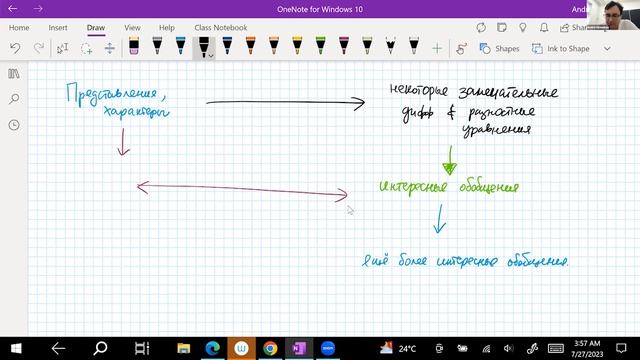 OneNote for Windows 10
File
Home
Insert
Draw
View
Help
Class Notebook
Shapes
Ink to Shape
Представления,
характеры
некоторые замечательные
дифф & разностные
уравнения
интересные обобщения
ещё более интересные обобщения.
24°C
3:57 AM
7/27/2023